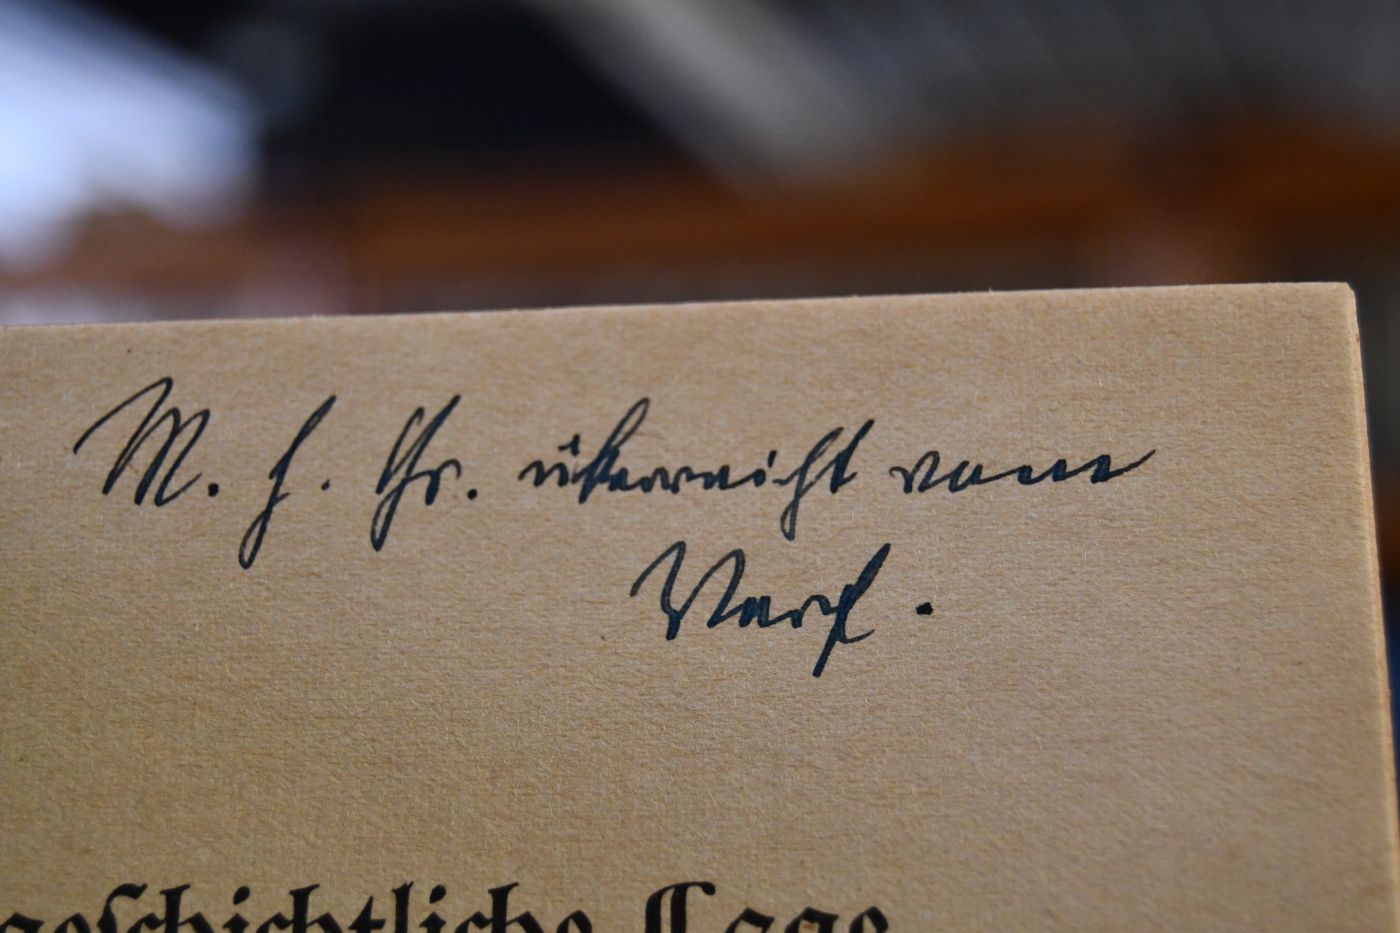 M. h. Gr. überreicht vom
Verf.
geschichtliche Lage